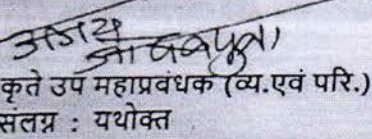 अजय
कृते उप महाप्रबंधक (व्य.एवं परि.)
संलग्न : यथोक्त